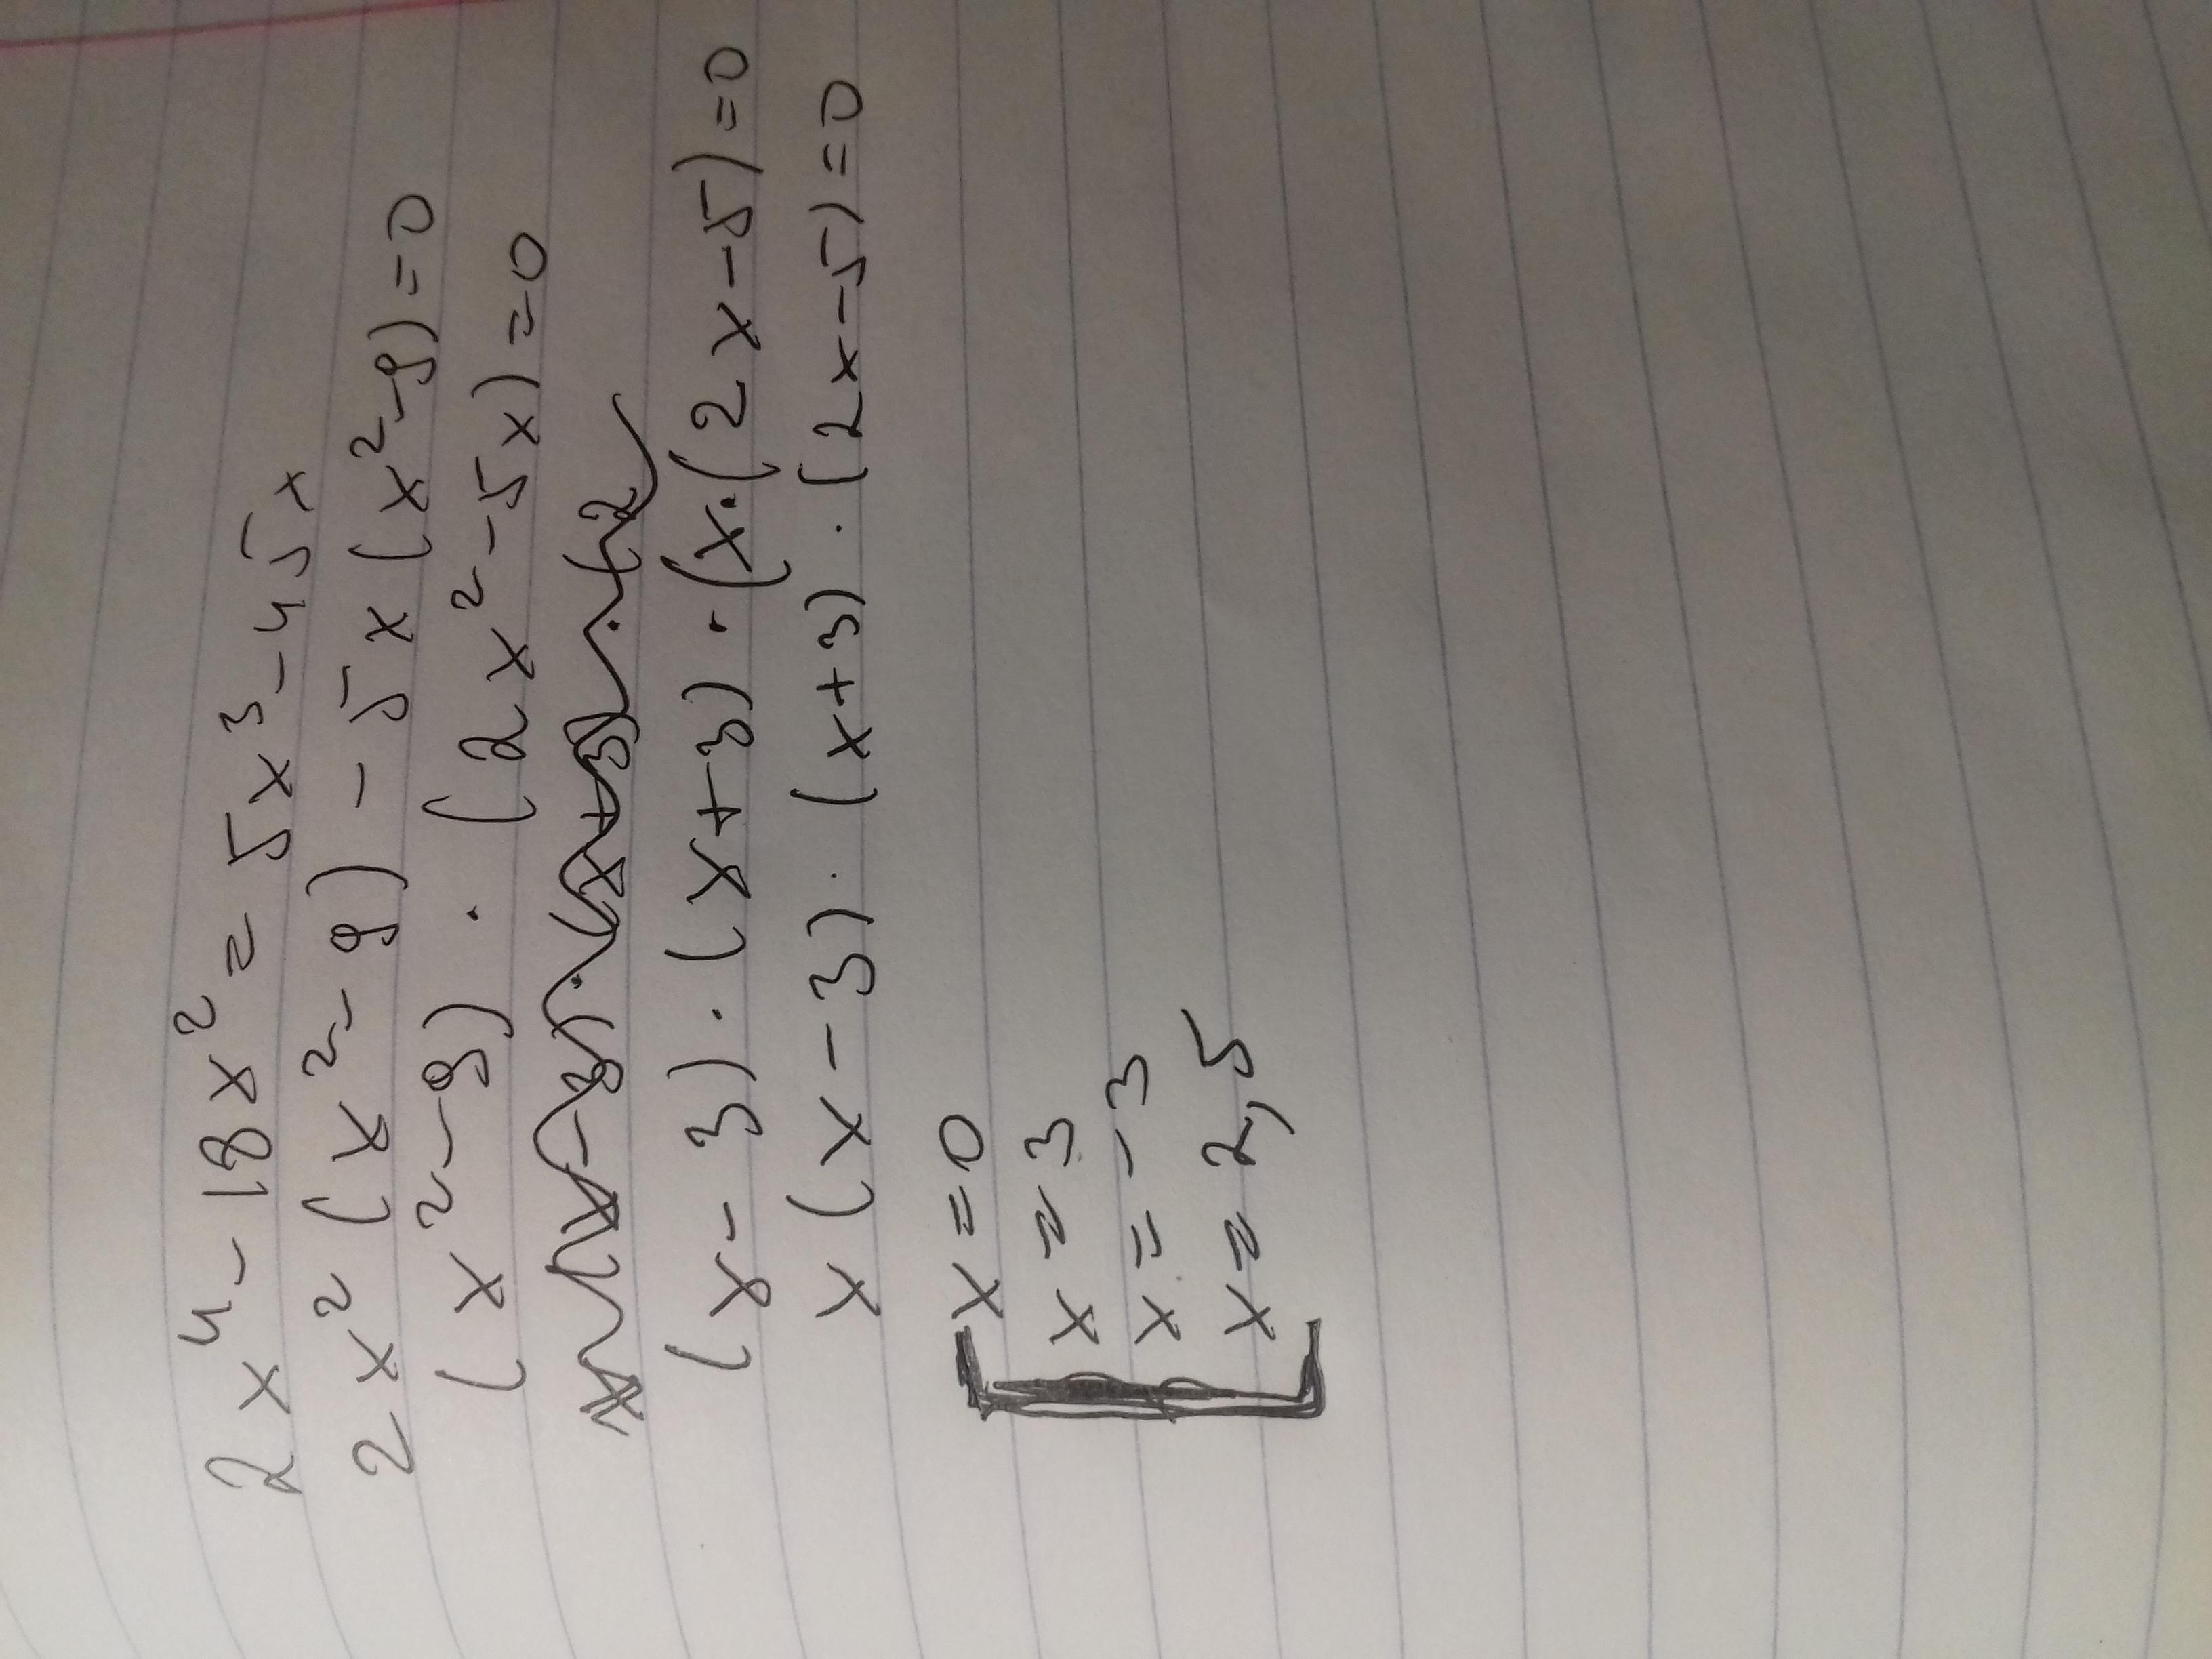 2x⁴-18x²=5x³-45x
2x²(x²-9)-5x(x²-9)=0
(x²-9)·(2x²-5x)=0
(x-3)·(x+3)·(x·(2x-5)=0
x(x-3)·(x+3)·(2x-5)=0
x=0
x=3
x=-3
x=2,5